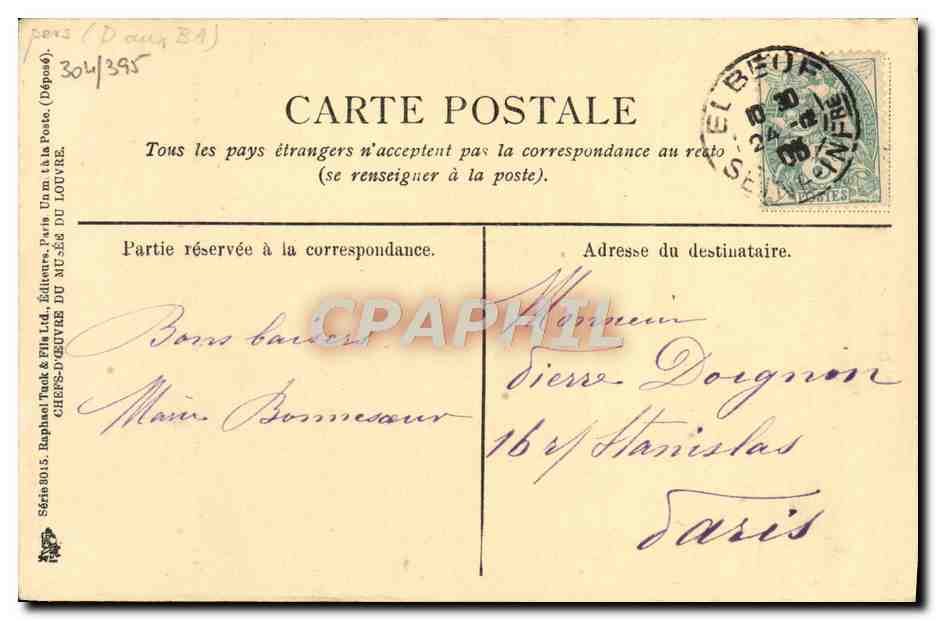 pers (D aux BA)
304/395
CARTE POSTALE
Tous les pays étrangers n'acceptent pas la correspondance au recto
(se renseigner à la poste).
ELBEUF
SEINE-INFRE
10 30
24 - 2
05
POSTES
Partie réservée à la correspondance.
Bons baisers
Marie Bonnesœur
Adresse du destinataire.
Monsieur
Pierre Doignon
16 r/ Stanislas
Paris
CPAPHIL
Série 3015. Raphael Tuck & Fils Ltd., Éditeurs. Paris. Un m. t à la Poste. (Déposé).
CHEFS-D'ŒUVRE DU MUSÉE DU LOUVRE.